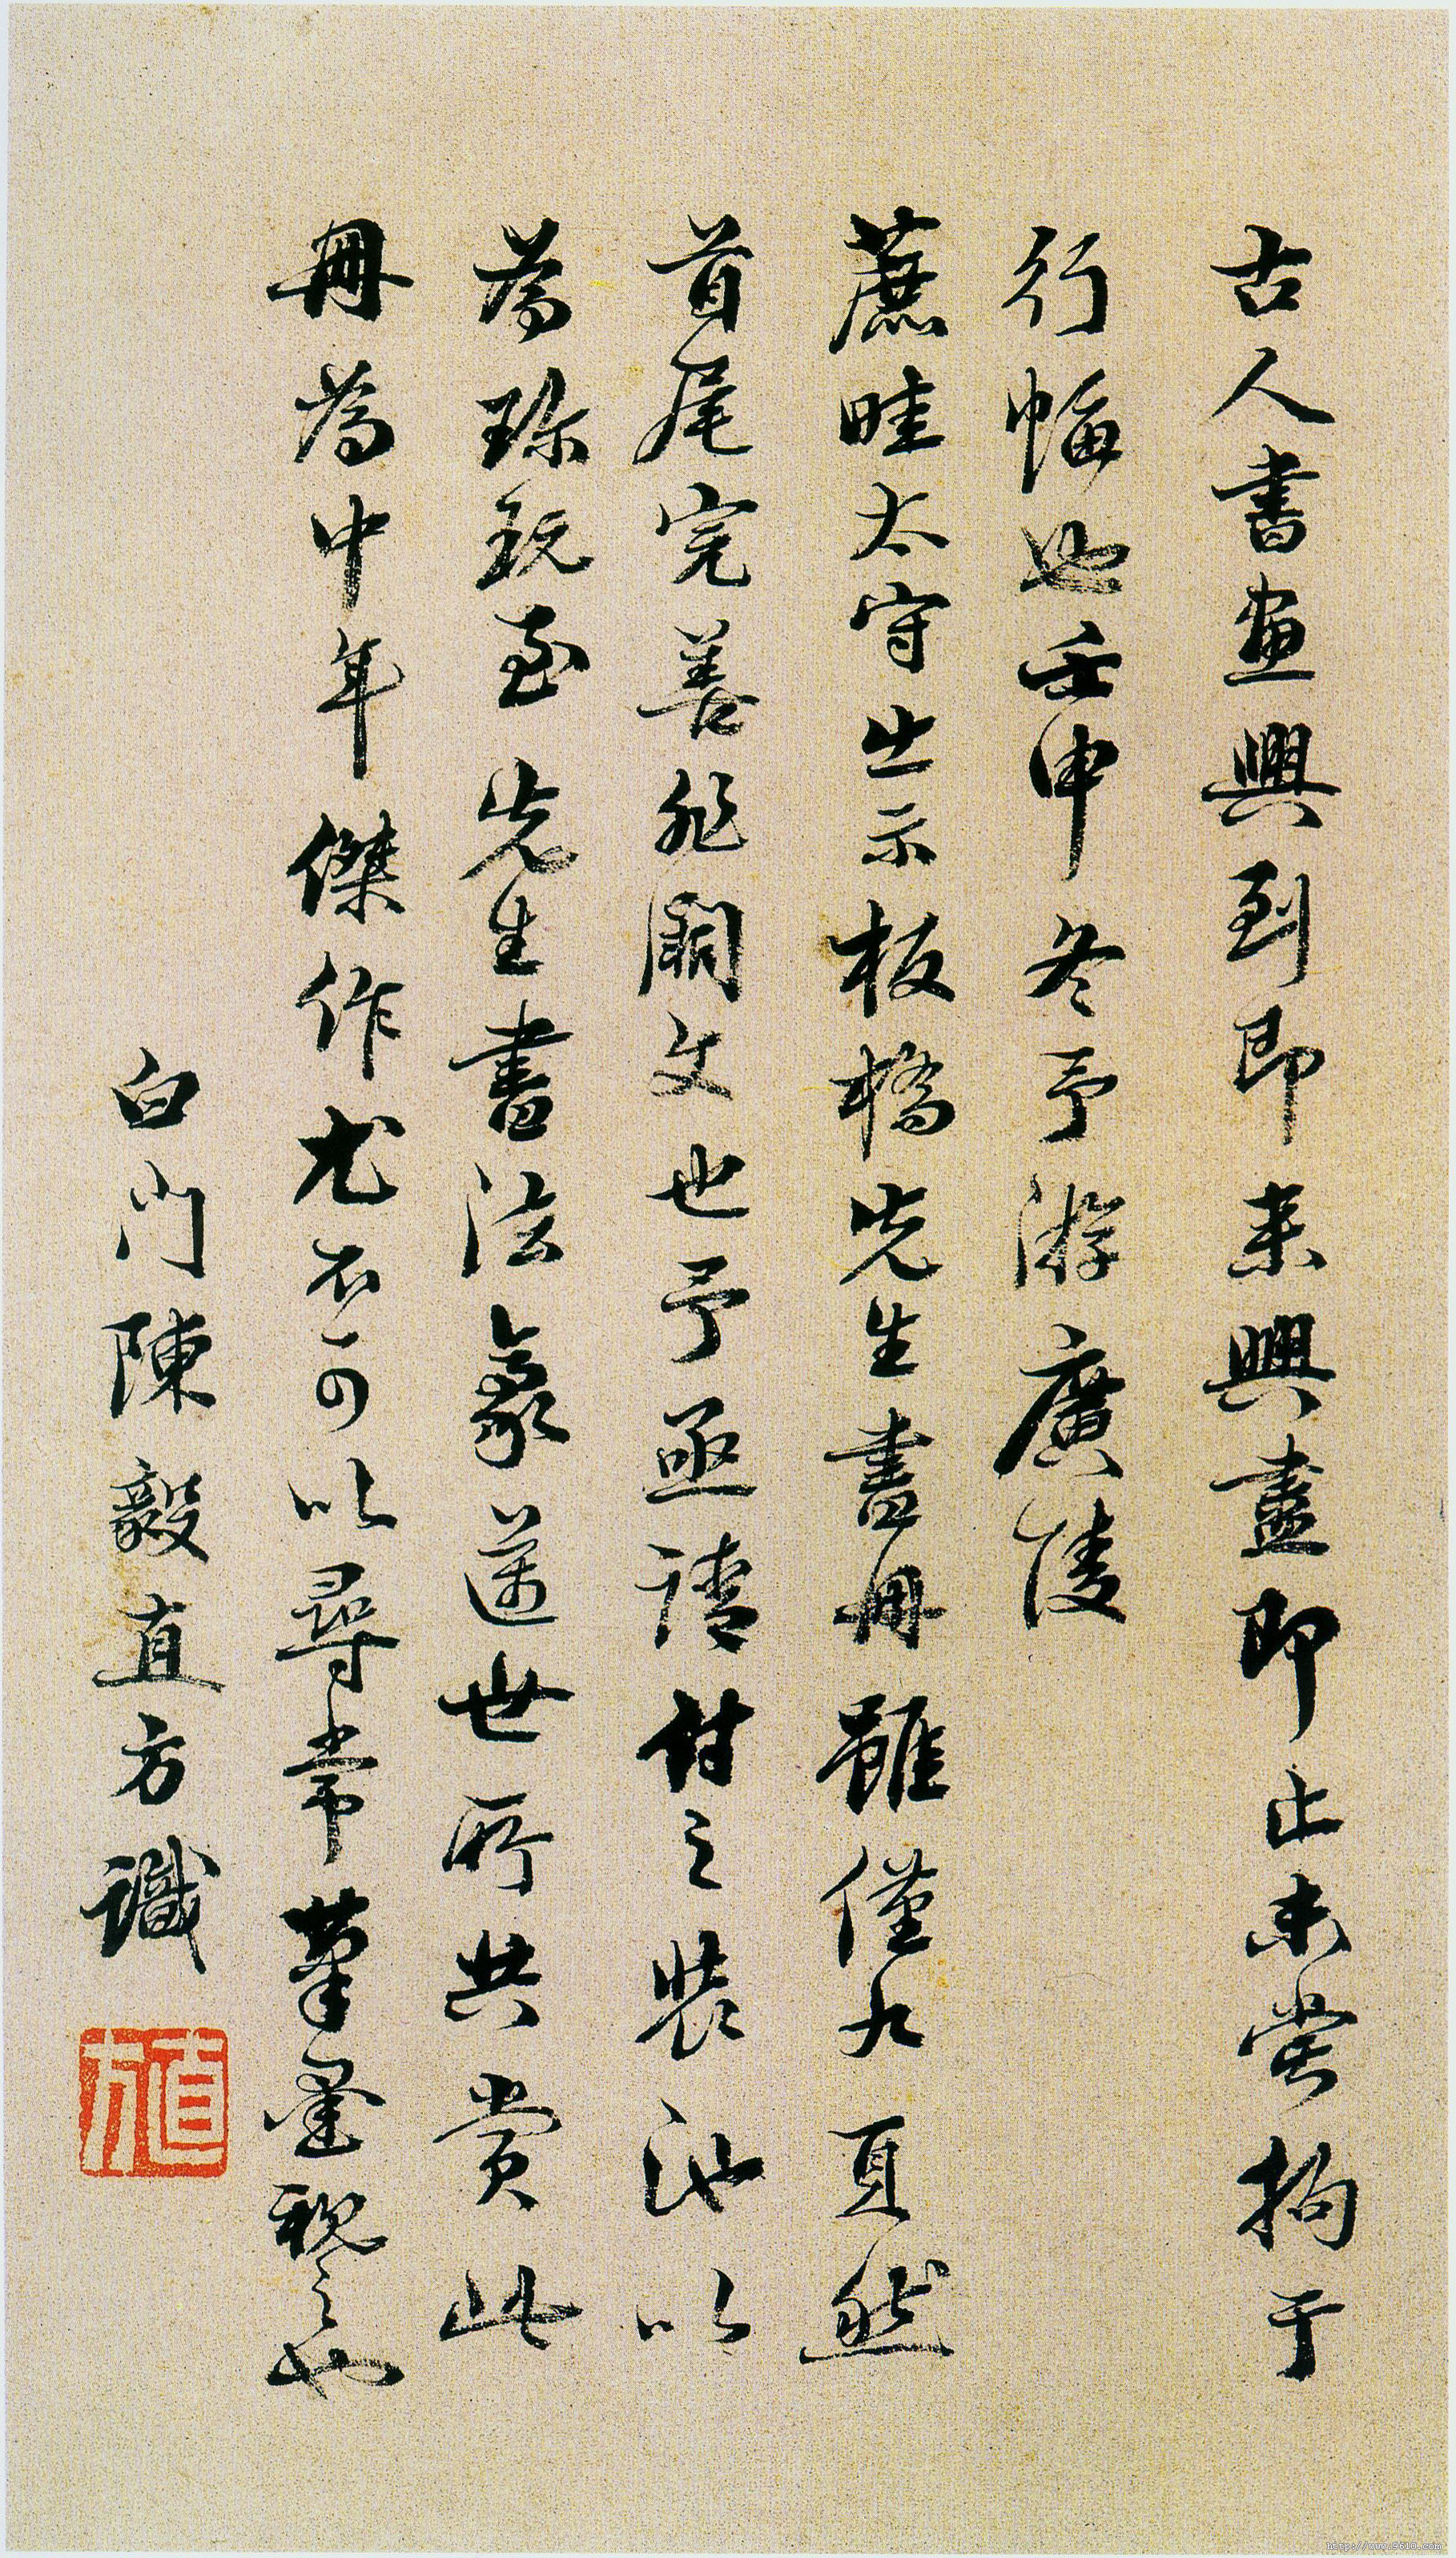 古人書畫興到即來興盡即止未嘗拘于
行幅也壬申冬予游廣陵
蔗畦太守出示板橋先生書冊雖僅九頁然
首尾完善非闕文也予亟請付之裝池以
為珎玩至先生書法豪邁世所共賞此
冊為中年傑作尤不可以尋常筆墨視之也
白門陳毅直方識
直方
http://www.9610.com